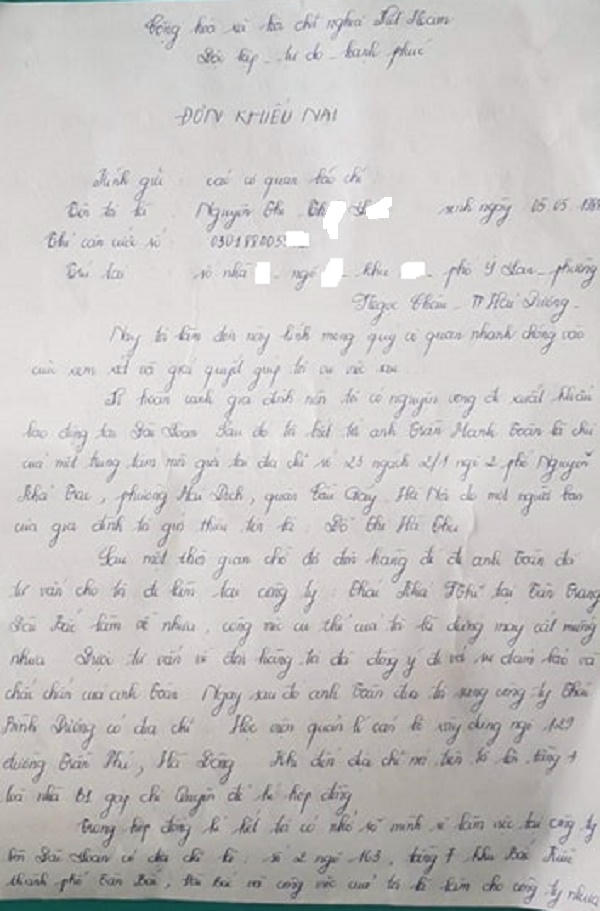 Cộng hoà xã hội chủ nghĩa Việt Nam
Độc lập - tự do - hạnh phúc
ĐƠN KHIẾU NẠI
Kính gửi : các cơ quan báo chí
Tên tôi là Nguyễn Thị sinh ngày 05.05.
Thẻ căn cước số : 030188005
Trú tại số nhà - ngõ - khu - phố Ỷ Lan - phường
Ngọc Châu - TP Hải Dương -
Nay tôi làm đơn này kính mong quý cơ quan nhanh chóng vào
cuộc xem xét và giải quyết giúp tôi vụ việc sau
Vì hoàn cảnh gia đình nên tôi có nguyện vọng đi xuất khẩu
lao động tại Đài Loan. Sau đó tôi biết tới anh Trần Mạnh Toàn là chủ
của một trung tâm môi giới tại địa chỉ số 23 ngách 2/1 ngõ 2 phố Nguyễn
Khả Trạc, phường Mai Dịch, quận Cầu Giấy. Hà Nội do một người bạn
của gia đình tôi giới thiệu tên là : Đỗ Thị Hà Thu
Sau một thời gian chờ đợi đơn hàng để đi anh Toàn đã
tư vấn cho tôi đi làm tại công ty : Thái Khải tại
Đài Bắc làm về nhựa, công việc cụ thể của tôi là đứng máy cắt miếng
nhựa. Dưới tư vấn về đơn hàng tôi đã đồng ý đi với sự đảm bảo và
chắc chắn của anh Toàn. Ngay sau đó anh Toàn đưa tôi sang công ty Thái
Bình Dương có địa chỉ : Học viện quản lí cán bộ xây dựng ngõ 129
đường Trần Phú, Hà Đông. Khi đến địa chỉ nói trên tôi lên tầng 7
toà nhà B1 gặp chị Quyên để kí hợp đồng
Trong hợp đồng kí kết tôi có nhớ rõ mình sẽ làm việc tại công ty
bên Đài Loan có địa chỉ là : số 2 ngõ 163, tầng 7 khu
thành phố Tân Bắc, Đài Bắc và công việc của tôi là làm cho công ty nhựa